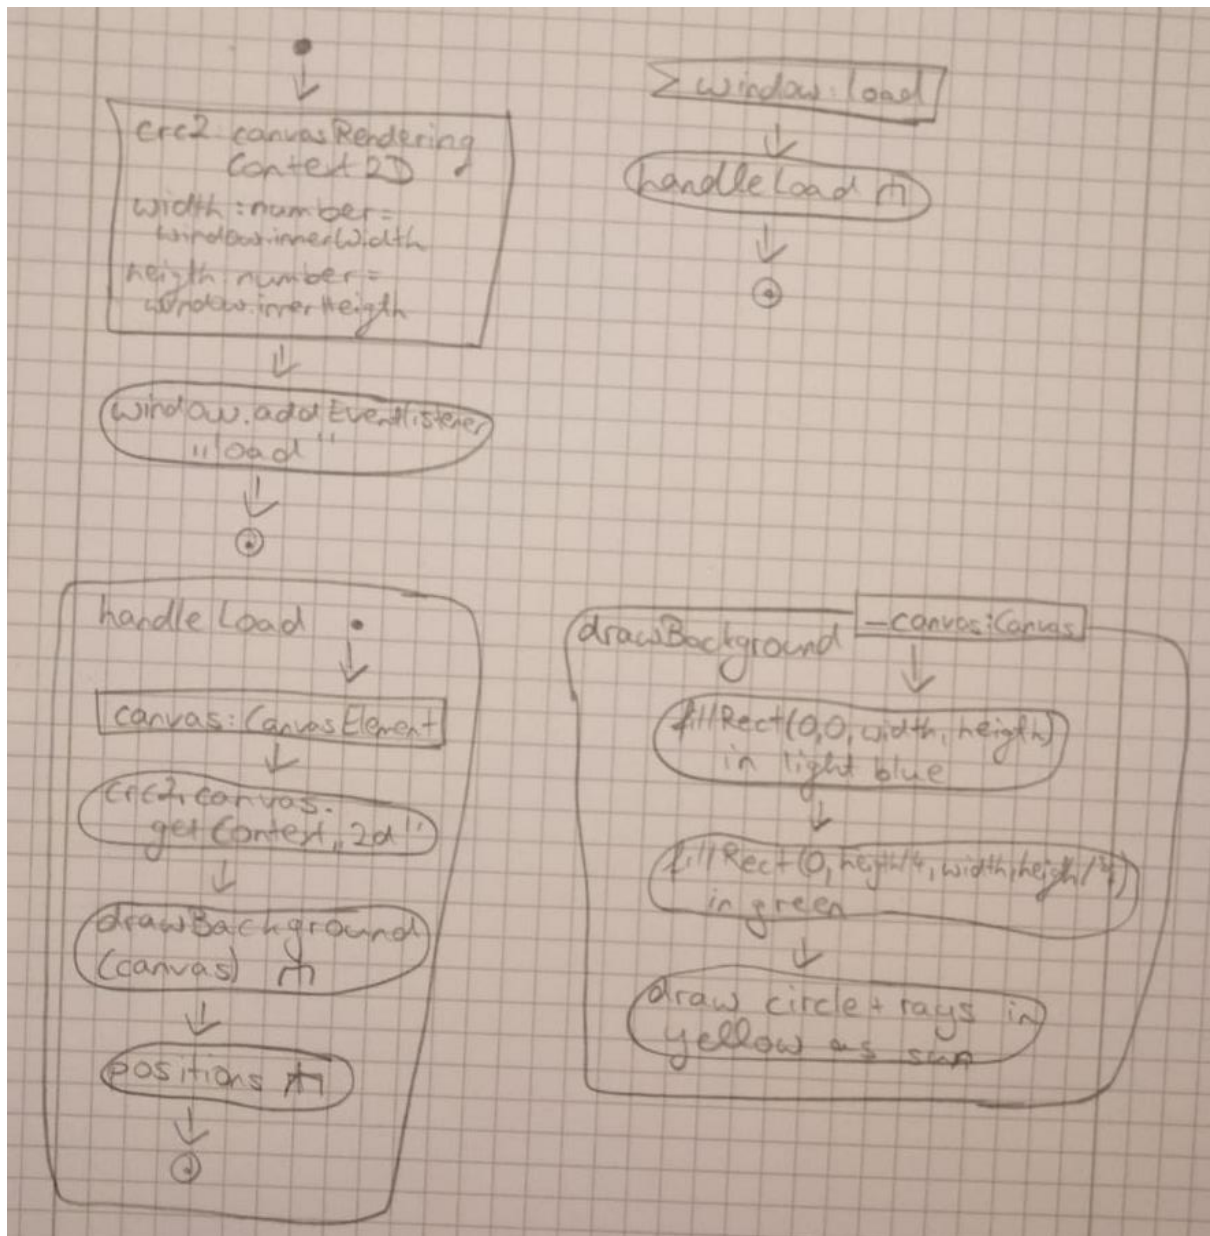 crc2 canvasRendering
Context 2D
width : number =
window.innerWidth
heigth : number =
window.innerHeigth
window.addEventlistener
„load"
window : load
handleLoad
handleLoad
canvas : CanvasElement
crc2, canvas.
getContext „2d"
drawBackground
(canvas)
positions
drawBackground
_canvas : Canvas
fillRect(0,0, width, heigth)
in light blue
fillRect(0, heigth/4, width, heigth/4)
in green
draw circle + rays in
yellow as sun